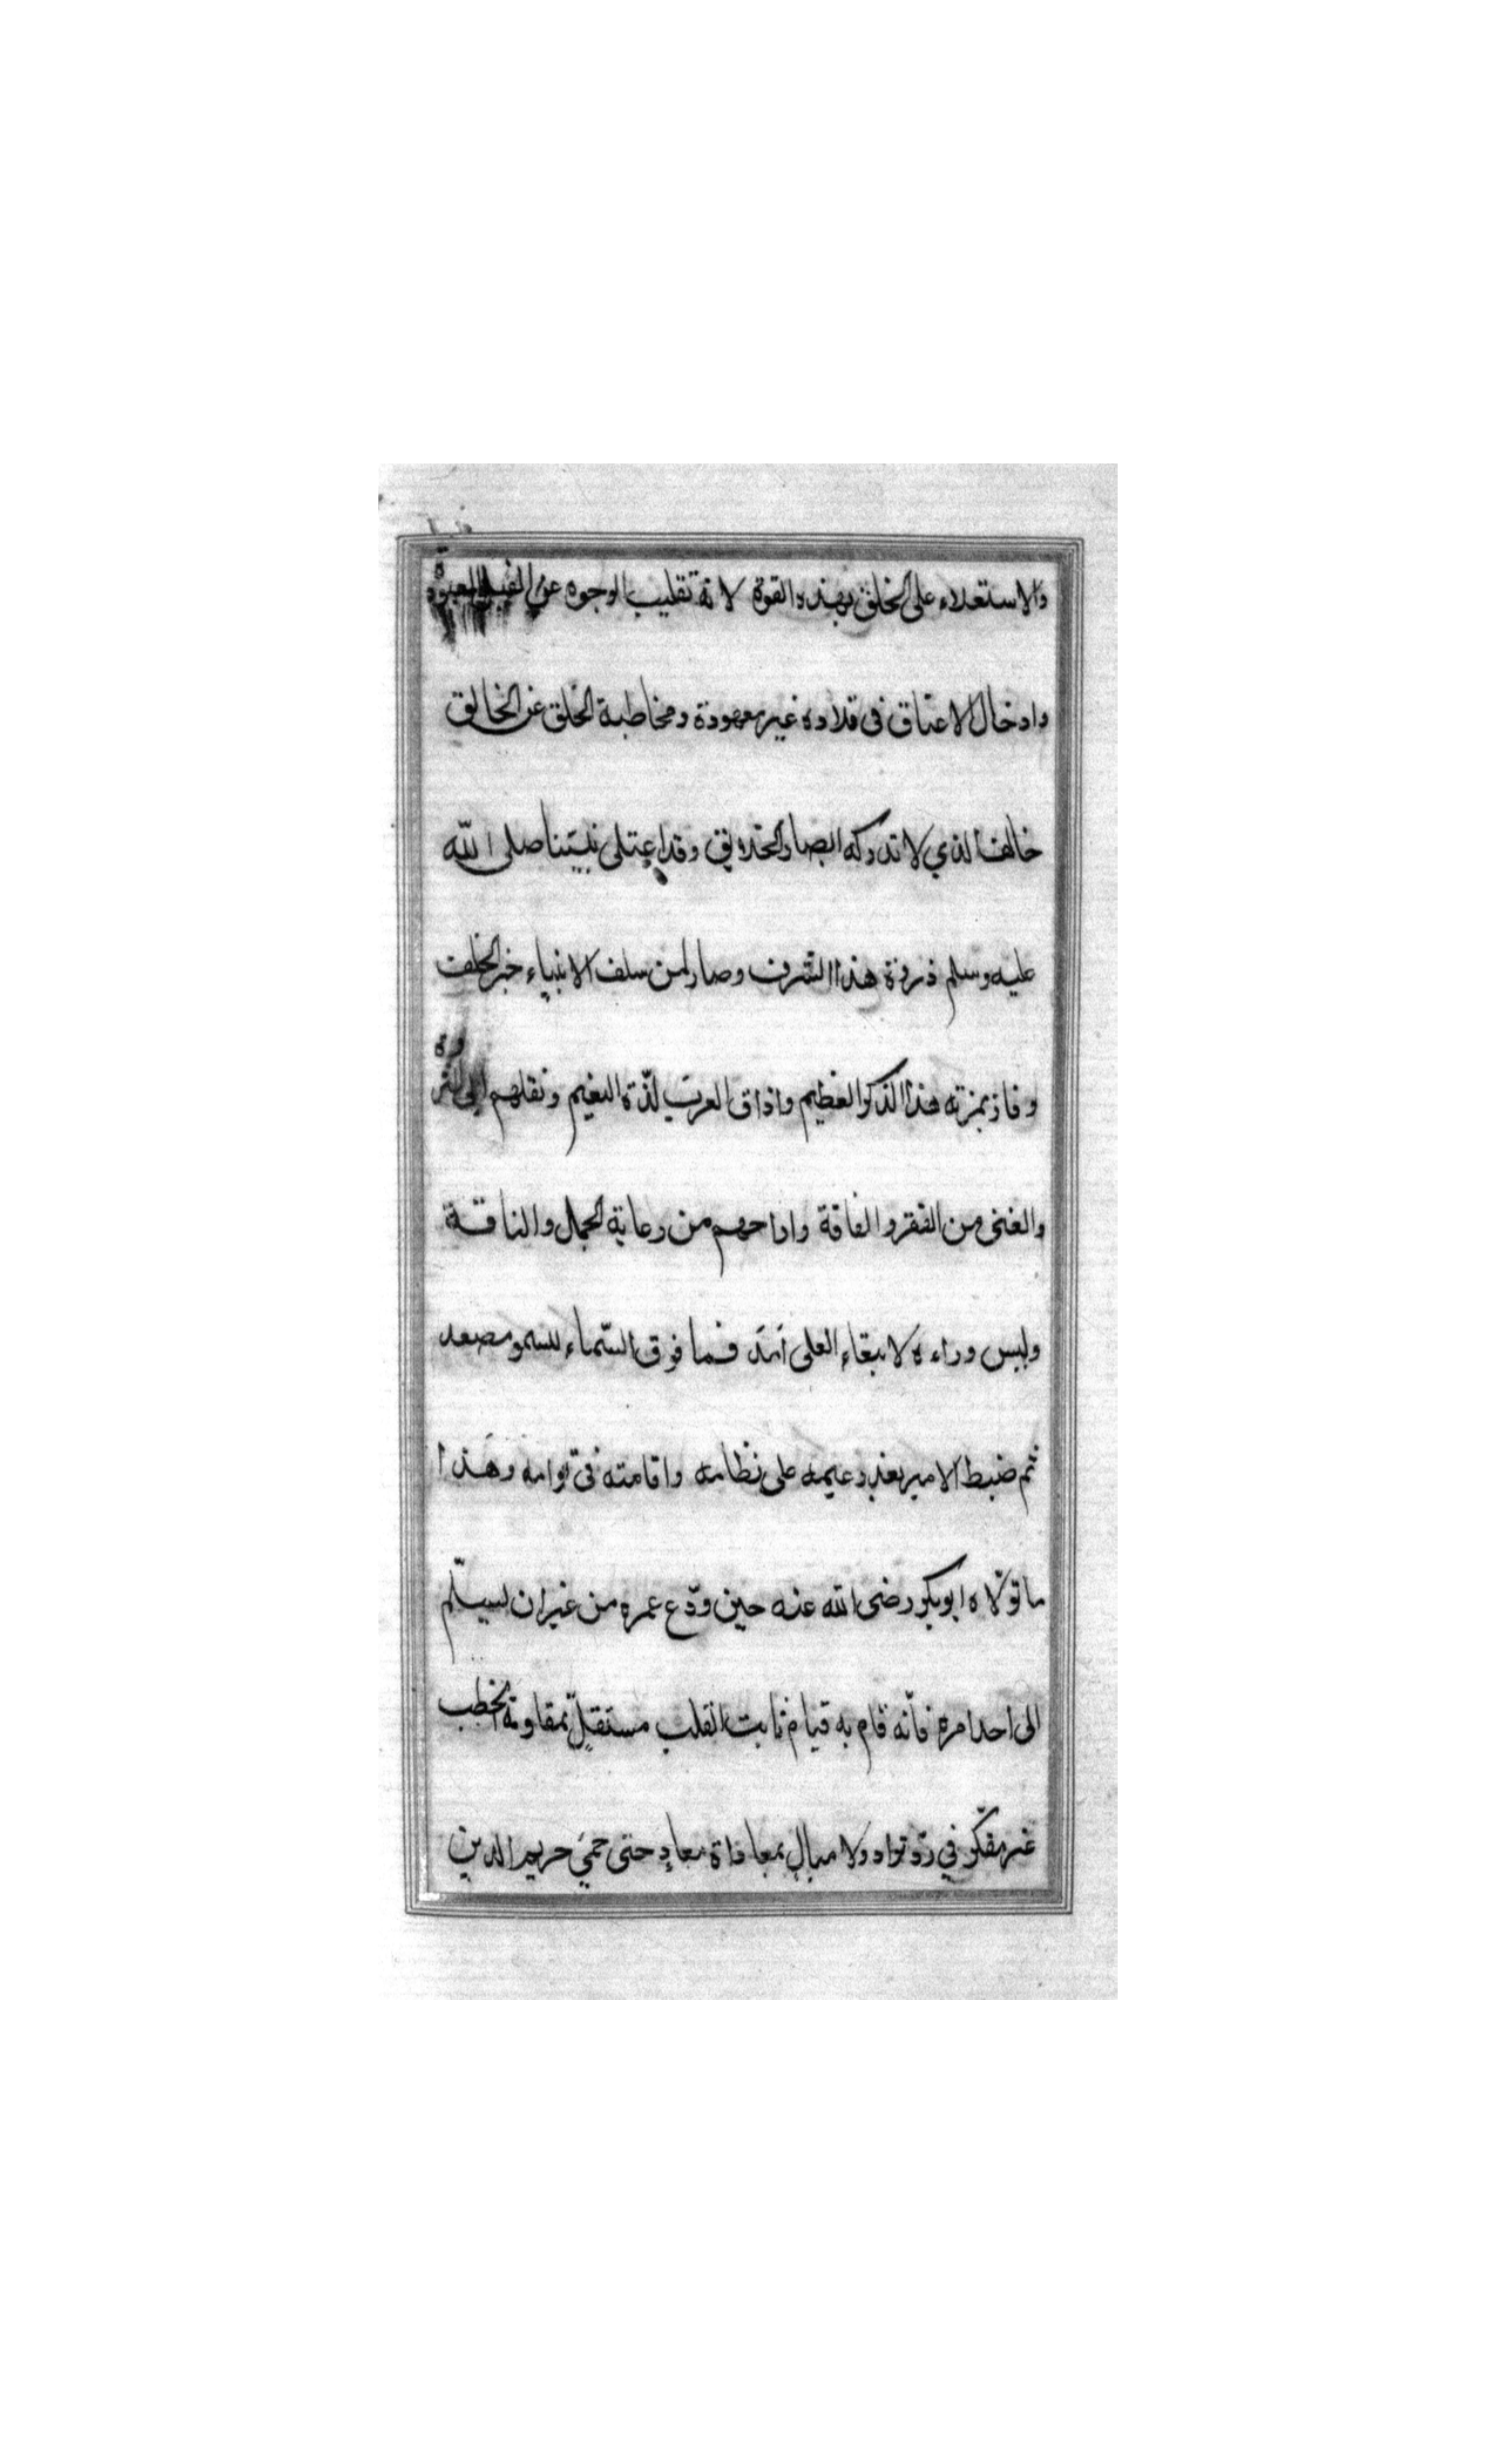 والاستعلاء على الخلق بهذه القوة لانه تقليب الوجوه عن القبل المعبوده
وادخال الاعناق فى قلاده غير معهودة ومخاطبة الخلق عن الخالق
خالفنا لذي لا تدركه ابصار الحدايق وقد اعتلى نبينا صلى الله
عليه وسلم ذروة هذا الشرف وصار لمن سلف الانبياء خير الخلف
وفاز بمزته هذا الذكر العظيم واذاق العرب لذة النعيم ونقلهم الى الثروة
والغنى من الفقر والفاقة واراحهم من رعاية الجمال والناقة
وليس وراءه لابتغاء العلى امد فما فوق السماء للسمو مصعد
ثم ضبط الامير بعد زعيمه على نظامه واقامته فى قوامه وهذا
ما تولاه ابوبكر رضى الله عنه حين ودع عمره من غير ان يسلم
الى احد امره فانه قام به قيام ثابت القلب مستقل بمقاومة الخطب
غير مفكر في رد تراد ولا مبال بمعاداة معاد حتى حمى حريم الدين